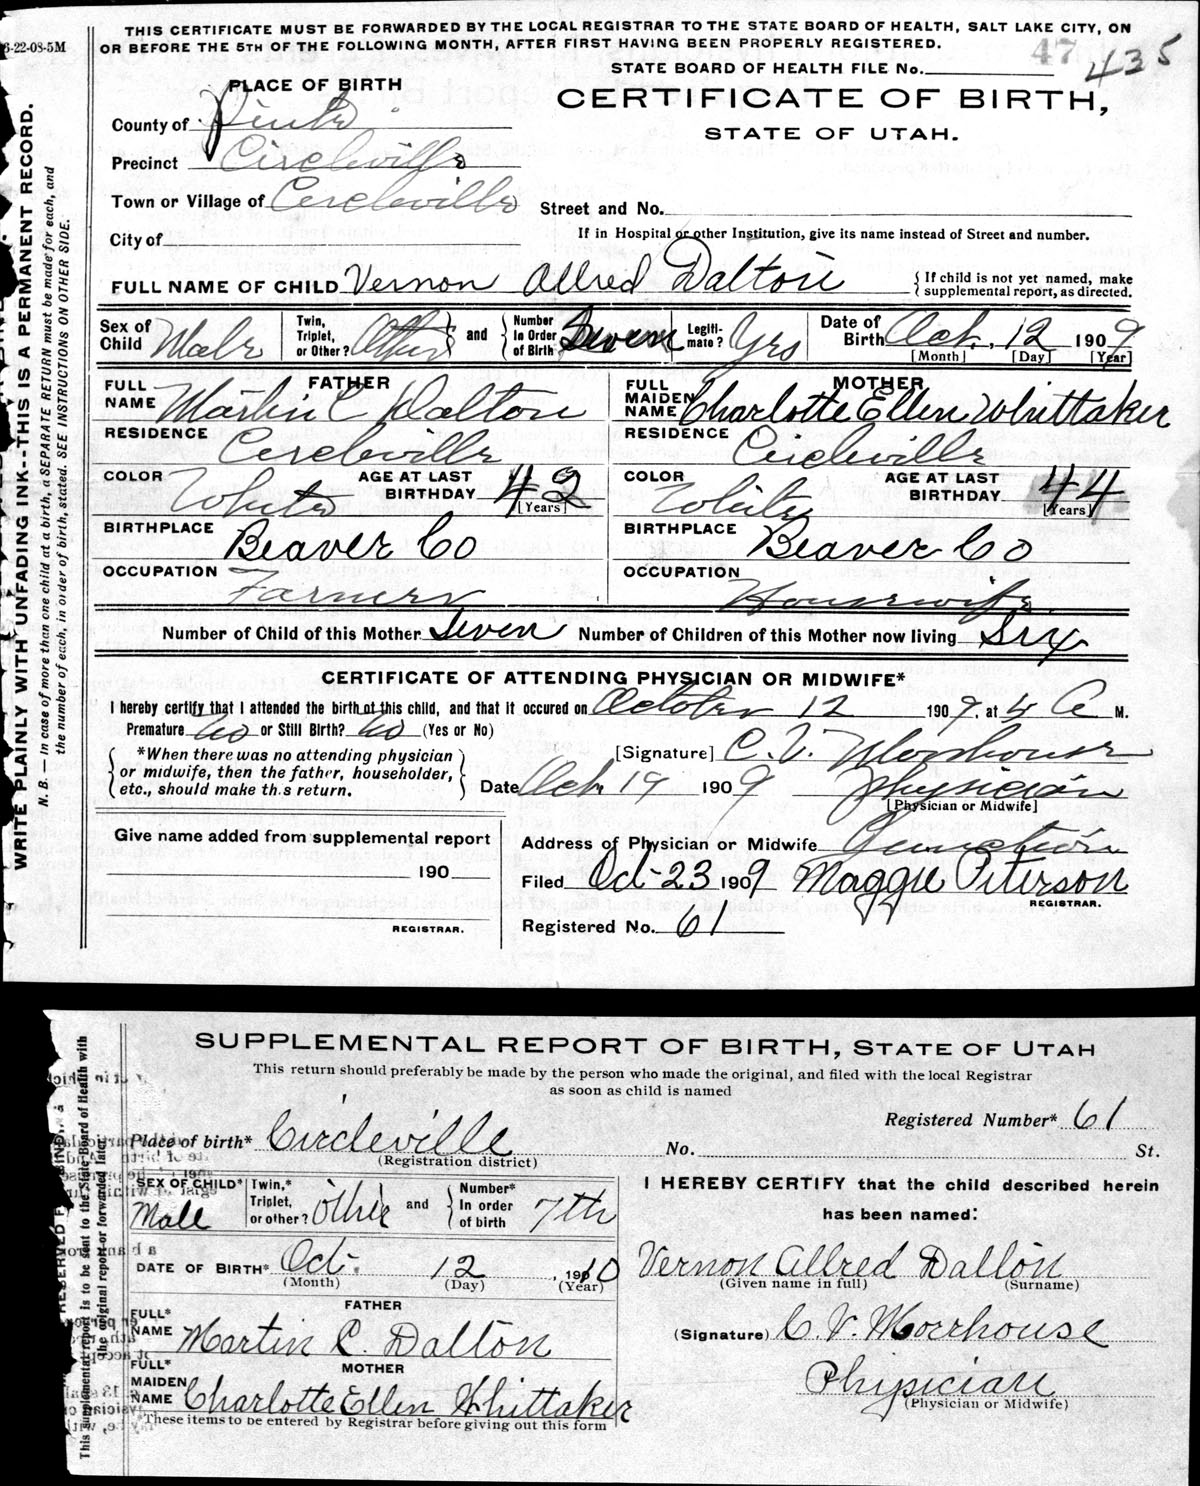 6-22-08-5M
THIS CERTIFICATE MUST BE FORWARDED BY THE LOCAL REGISTRAR TO THE STATE BOARD OF HEALTH, SALT LAKE CITY, ON
OR BEFORE THE 5TH OF THE FOLLOWING MONTH, AFTER FIRST HAVING BEEN PROPERLY REGISTERED.
47 435
STATE BOARD OF HEALTH FILE No.
PLACE OF BIRTH
CERTIFICATE OF BIRTH,
STATE OF UTAH.
County of Piute
Precinct Circleville
Town or Village of Circleville
Street and No.
City of
If in Hospital or other Institution, give its name instead of Street and number.
FULL NAME OF CHILD Vernon Allred Dalton {If child is not yet named, make supplemental report, as directed.
Sex of Child Male Twin, Triplet, or Other? Other and Number In Order of Birth Seven Legitimate? Yes Date of Birth Oct. 12 1909
[Month] [Day] [Year]
FATHER MOTHER
FULL NAME Martin C Dalton FULL MAIDEN NAME Charlotte Ellen Whittaker
RESIDENCE Circleville RESIDENCE Circleville
COLOR White AGE AT LAST BIRTHDAY 42 [Years] COLOR White AGE AT LAST BIRTHDAY 44 [Years]
BIRTHPLACE Beaver Co BIRTHPLACE Beaver Co
OCCUPATION Farmer OCCUPATION Housewife
Number of Child of this Mother Seven Number of Children of this Mother now living Six
CERTIFICATE OF ATTENDING PHYSICIAN OR MIDWIFE*
I hereby certify that I attended the birth of this child, and that it occured on October 12 1909, at 4 A M.
Premature No or Still Birth? No (Yes or No)
*When there was no attending physician
or midwife, then the father, householder,
etc., should make this return.
[Signature] C. V. Moorhouse
Date Oct. 19 1909 Physician
[Physician or Midwife]
Give name added from supplemental report
190
REGISTRAR.
Address of Physician or Midwife Junction
Filed Oct-23 1909 Maggie Peterson
REGISTRAR.
Registered No. 61
WRITE PLAINLY WITH UNFADING INK--THIS IS A PERMANENT RECORD.
N. B. — In case of more than one child at a birth, a SEPARATE RETURN must be made for each, and
the number of each, in order of birth, stated. SEE INSTRUCTIONS ON OTHER SIDE.
SUPPLEMENTAL REPORT OF BIRTH, STATE OF UTAH
This return should preferably be made by the person who made the original, and filed with the local Registrar
as soon as child is named
Registered Number* 61
Place of birth* Circleville No. St.
(Registration district)
SEX OF CHILD* Male Twin,* Triplet, or other? other and Number* In order of birth 7th
DATE OF BIRTH* Oct. 12, 1910
(Month) (Day) (Year)
FATHER
FULL* NAME Martin C. Dalton
MOTHER
FULL* MAIDEN NAME Charlotte Ellen Whittaker
*These items to be entered by Registrar before giving out this form
I HEREBY CERTIFY that the child described herein
has been named:
Vernon Allred Dalton
(Given name in full) (Surname)
(Signature) C. V. Moorhouse
Physician
(Physician or Midwife)
This supplemental report is to be sent to the State Board of Health with
the original report or forwarded later.